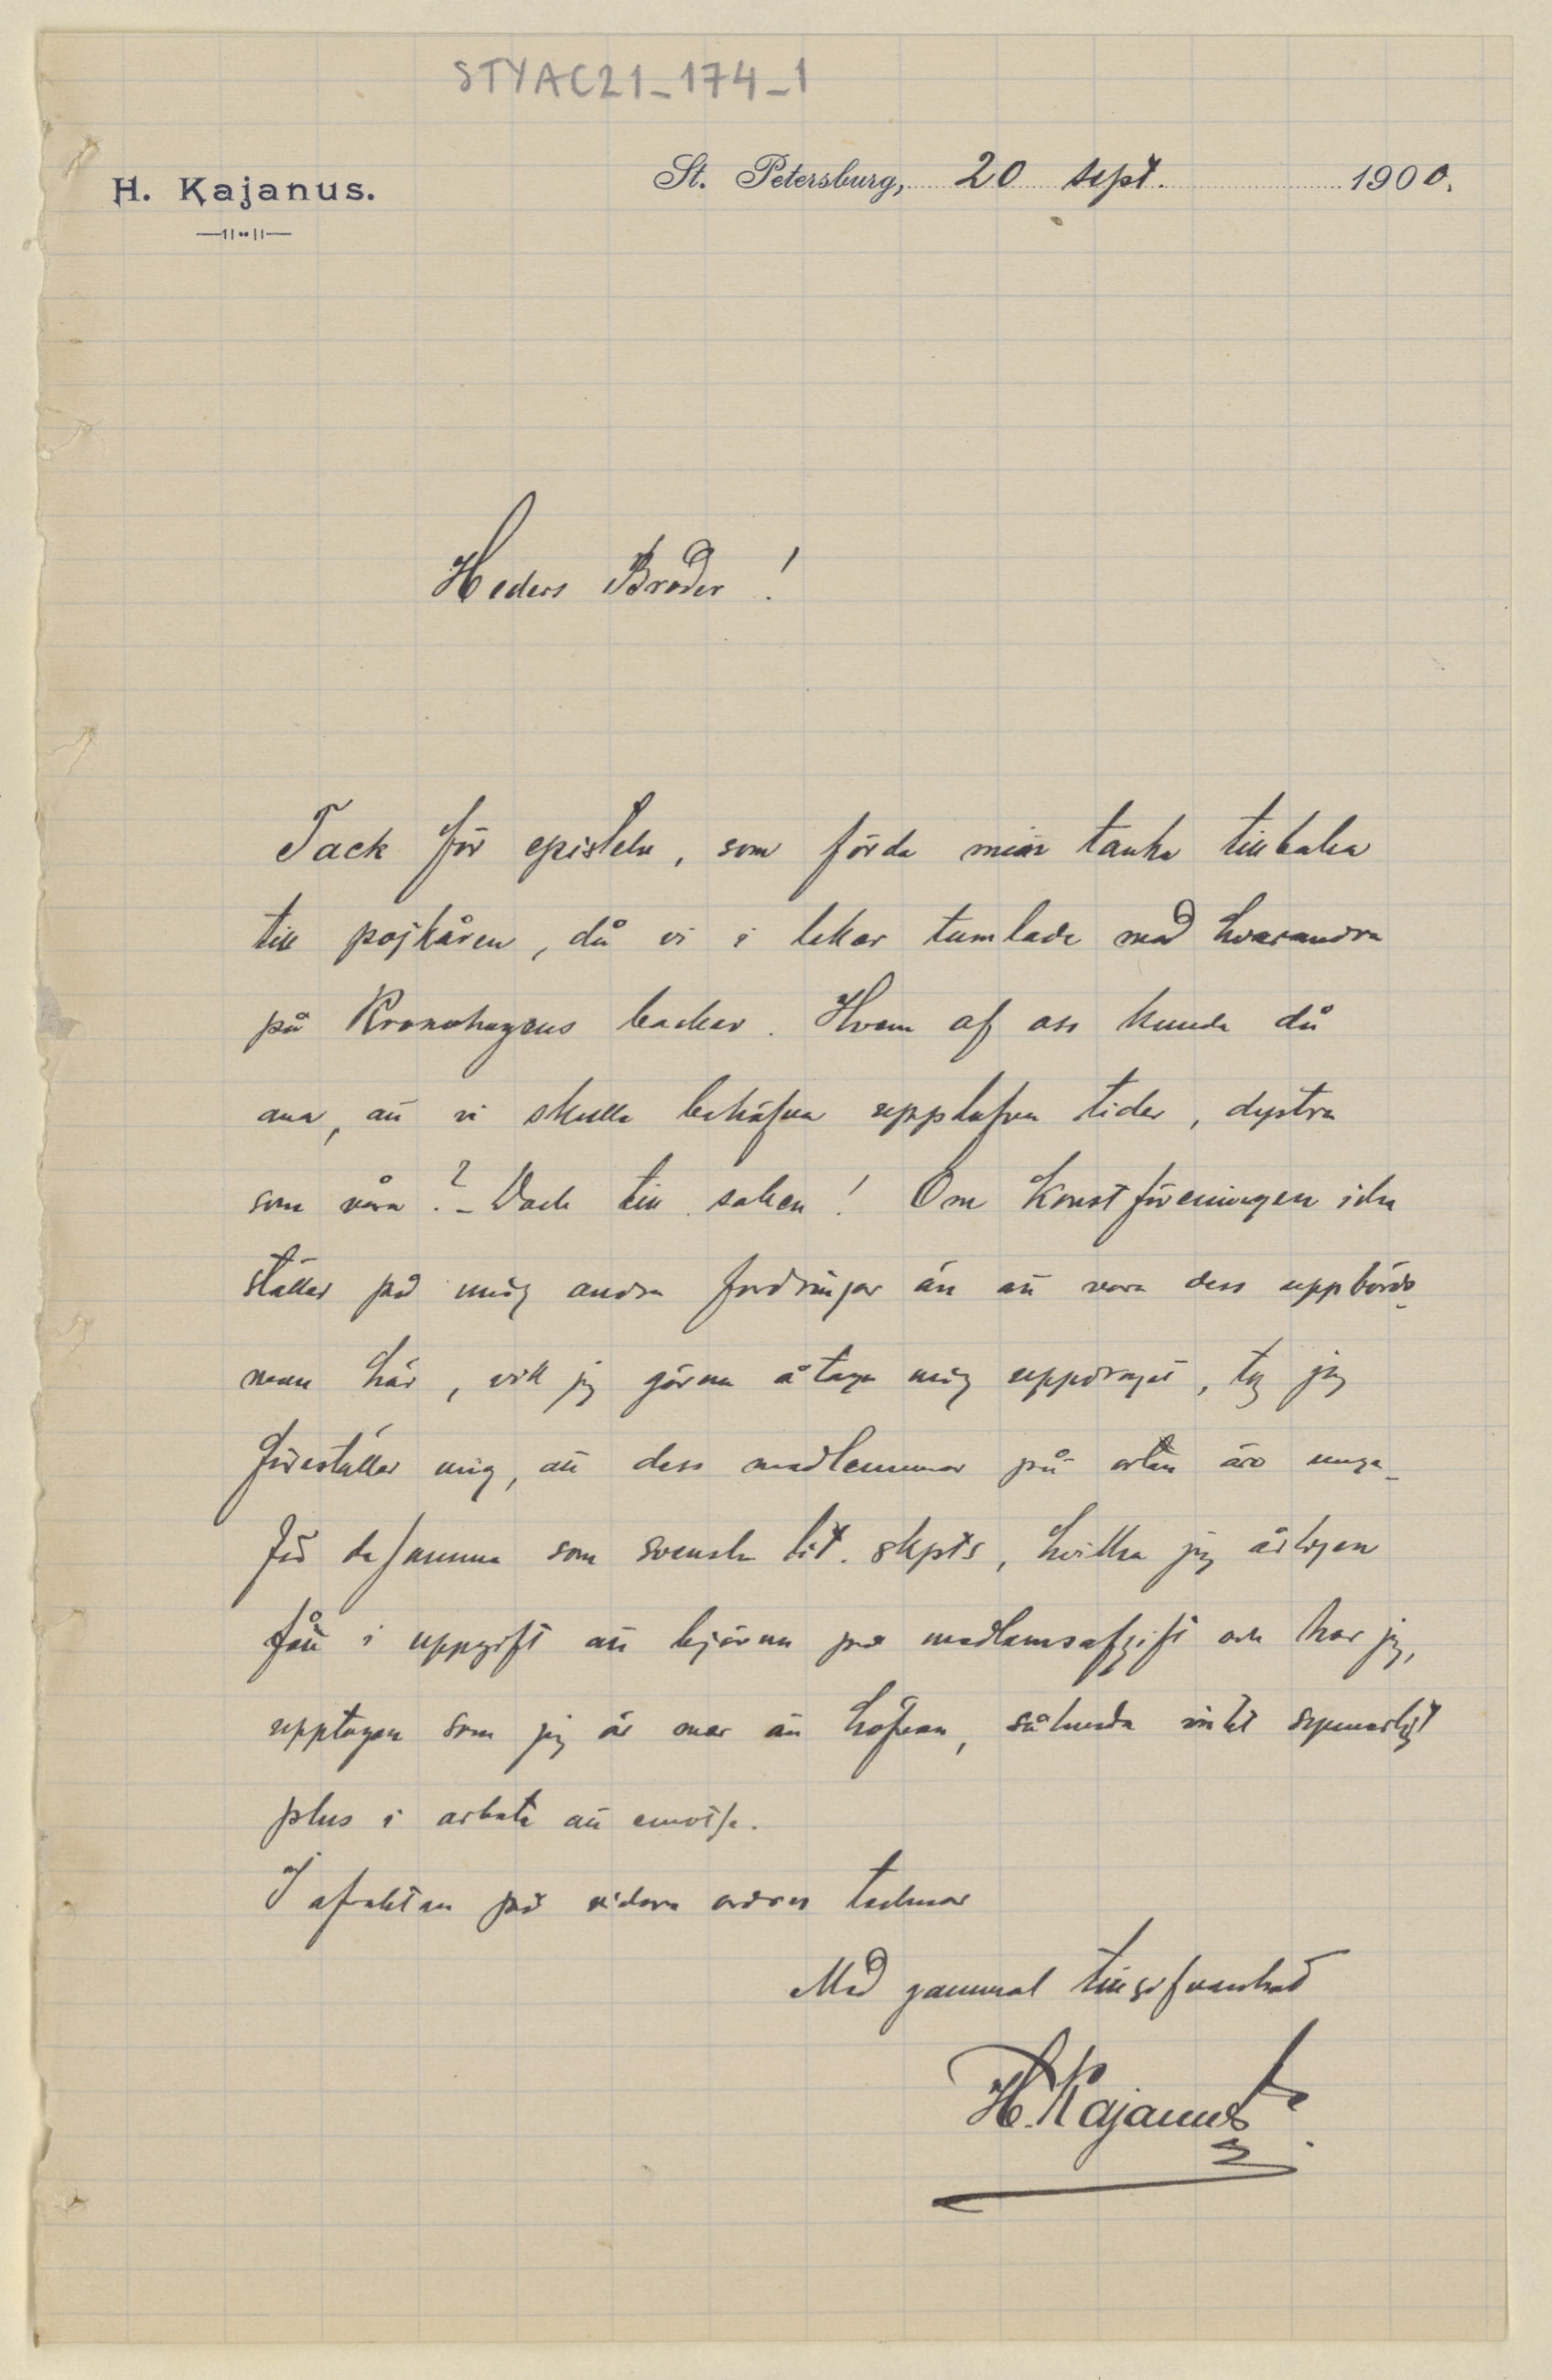 STYAC21_174_1
H. Kajanus.
St. Petersburg, 20 sept. 1900.
Heders Broder!
Tack för episteln, som förde min tanke tillbaka
till pojkåren, då vi i lekar tumlade med hvarandra
på Kronohagens backar. Hvem af oss kunde då
ana, att vi skulle behöfva upplefva tider, dystra
som våra? – Dock till saken! Om Konstföreningen icke
ställer på mig andra fordringar än att vara dess uppbörds-
man här, vill jag gärna åtaga mig uppdraget, ty jag
föreställer mig, att dess medlemmar på orten äro unge-
fär desamma som svenska lit. skpts, hvilka jag årligen
fått i uppgift att björna på medlemsafgift och har jag,
upptagen som jag är mer än höfvan, sålunda intet synnerligt
plus i arbete att emotse.
I afvaktan på vidare ordres tecknar
Med gammal tillgifvenhet
H. Kajanus